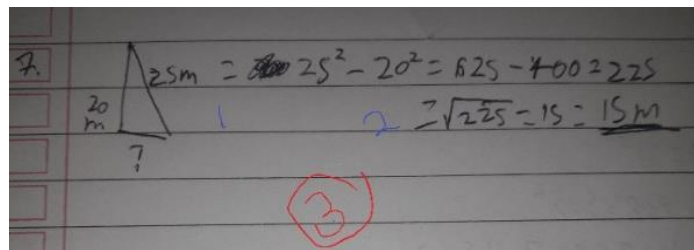 7. 25m = 25² - 20² = 625 - 400 = 225
20 m 1 2 = √225 = 15 = 15m
?
3